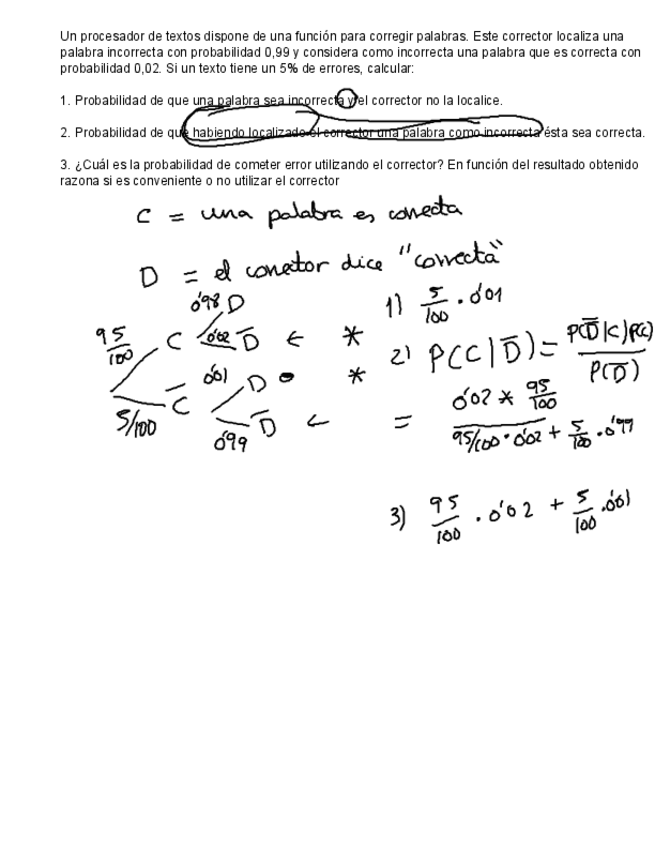 Un procesador de textos dispone de una función para corregir palabras. Este corrector localiza una
palabra incorrecta con probabilidad 0,99 y considera como incorrecta una palabra que es correcta con
probabilidad 0,02. Si un texto tiene un 5% de errores, calcular:
1. Probabilidad de que una palabra sea incorrecta y el corrector no la localice.
2. Probabilidad de que habiendo localizado el corrector una palabra como incorrecta ésta sea correcta.
3. ¿Cuál es la probabilidad de cometer error utilizando el corrector? En función del resultado obtenido
razona si es conveniente o no utilizar el corrector
C = una palabra es correcta
D = el corrector dice "correcta"
0'98 D
95/100 C 0'02 D̅ ← *
0'01 D *
5/100 C̅
0'99 D̅ ←
1) 5/100 · 0'01
2) P(C|D̅) = P(D̅|C)P(C) / P(D̅)
= 0'02 * 95/100 / 95/100 · 0'02 + 5/100 · 0'99
3) 95/100 · 0'02 + 5/100 · 0'01